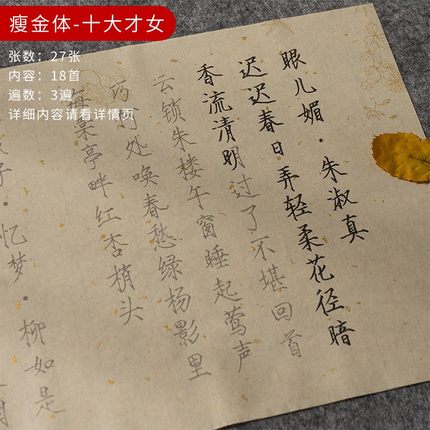 瘦金体-十大才女
张数：27张
内容：18首
遍数：3遍
详细内容请看详情页
眼儿媚·朱淑真
迟迟春日弄轻柔花径暗
香流清明过了不堪回首
云锁朱楼午窗睡起莺声
巧何处唤春愁绿杨影里
海棠亭畔红杏梢头
子·忆梦·柳如是